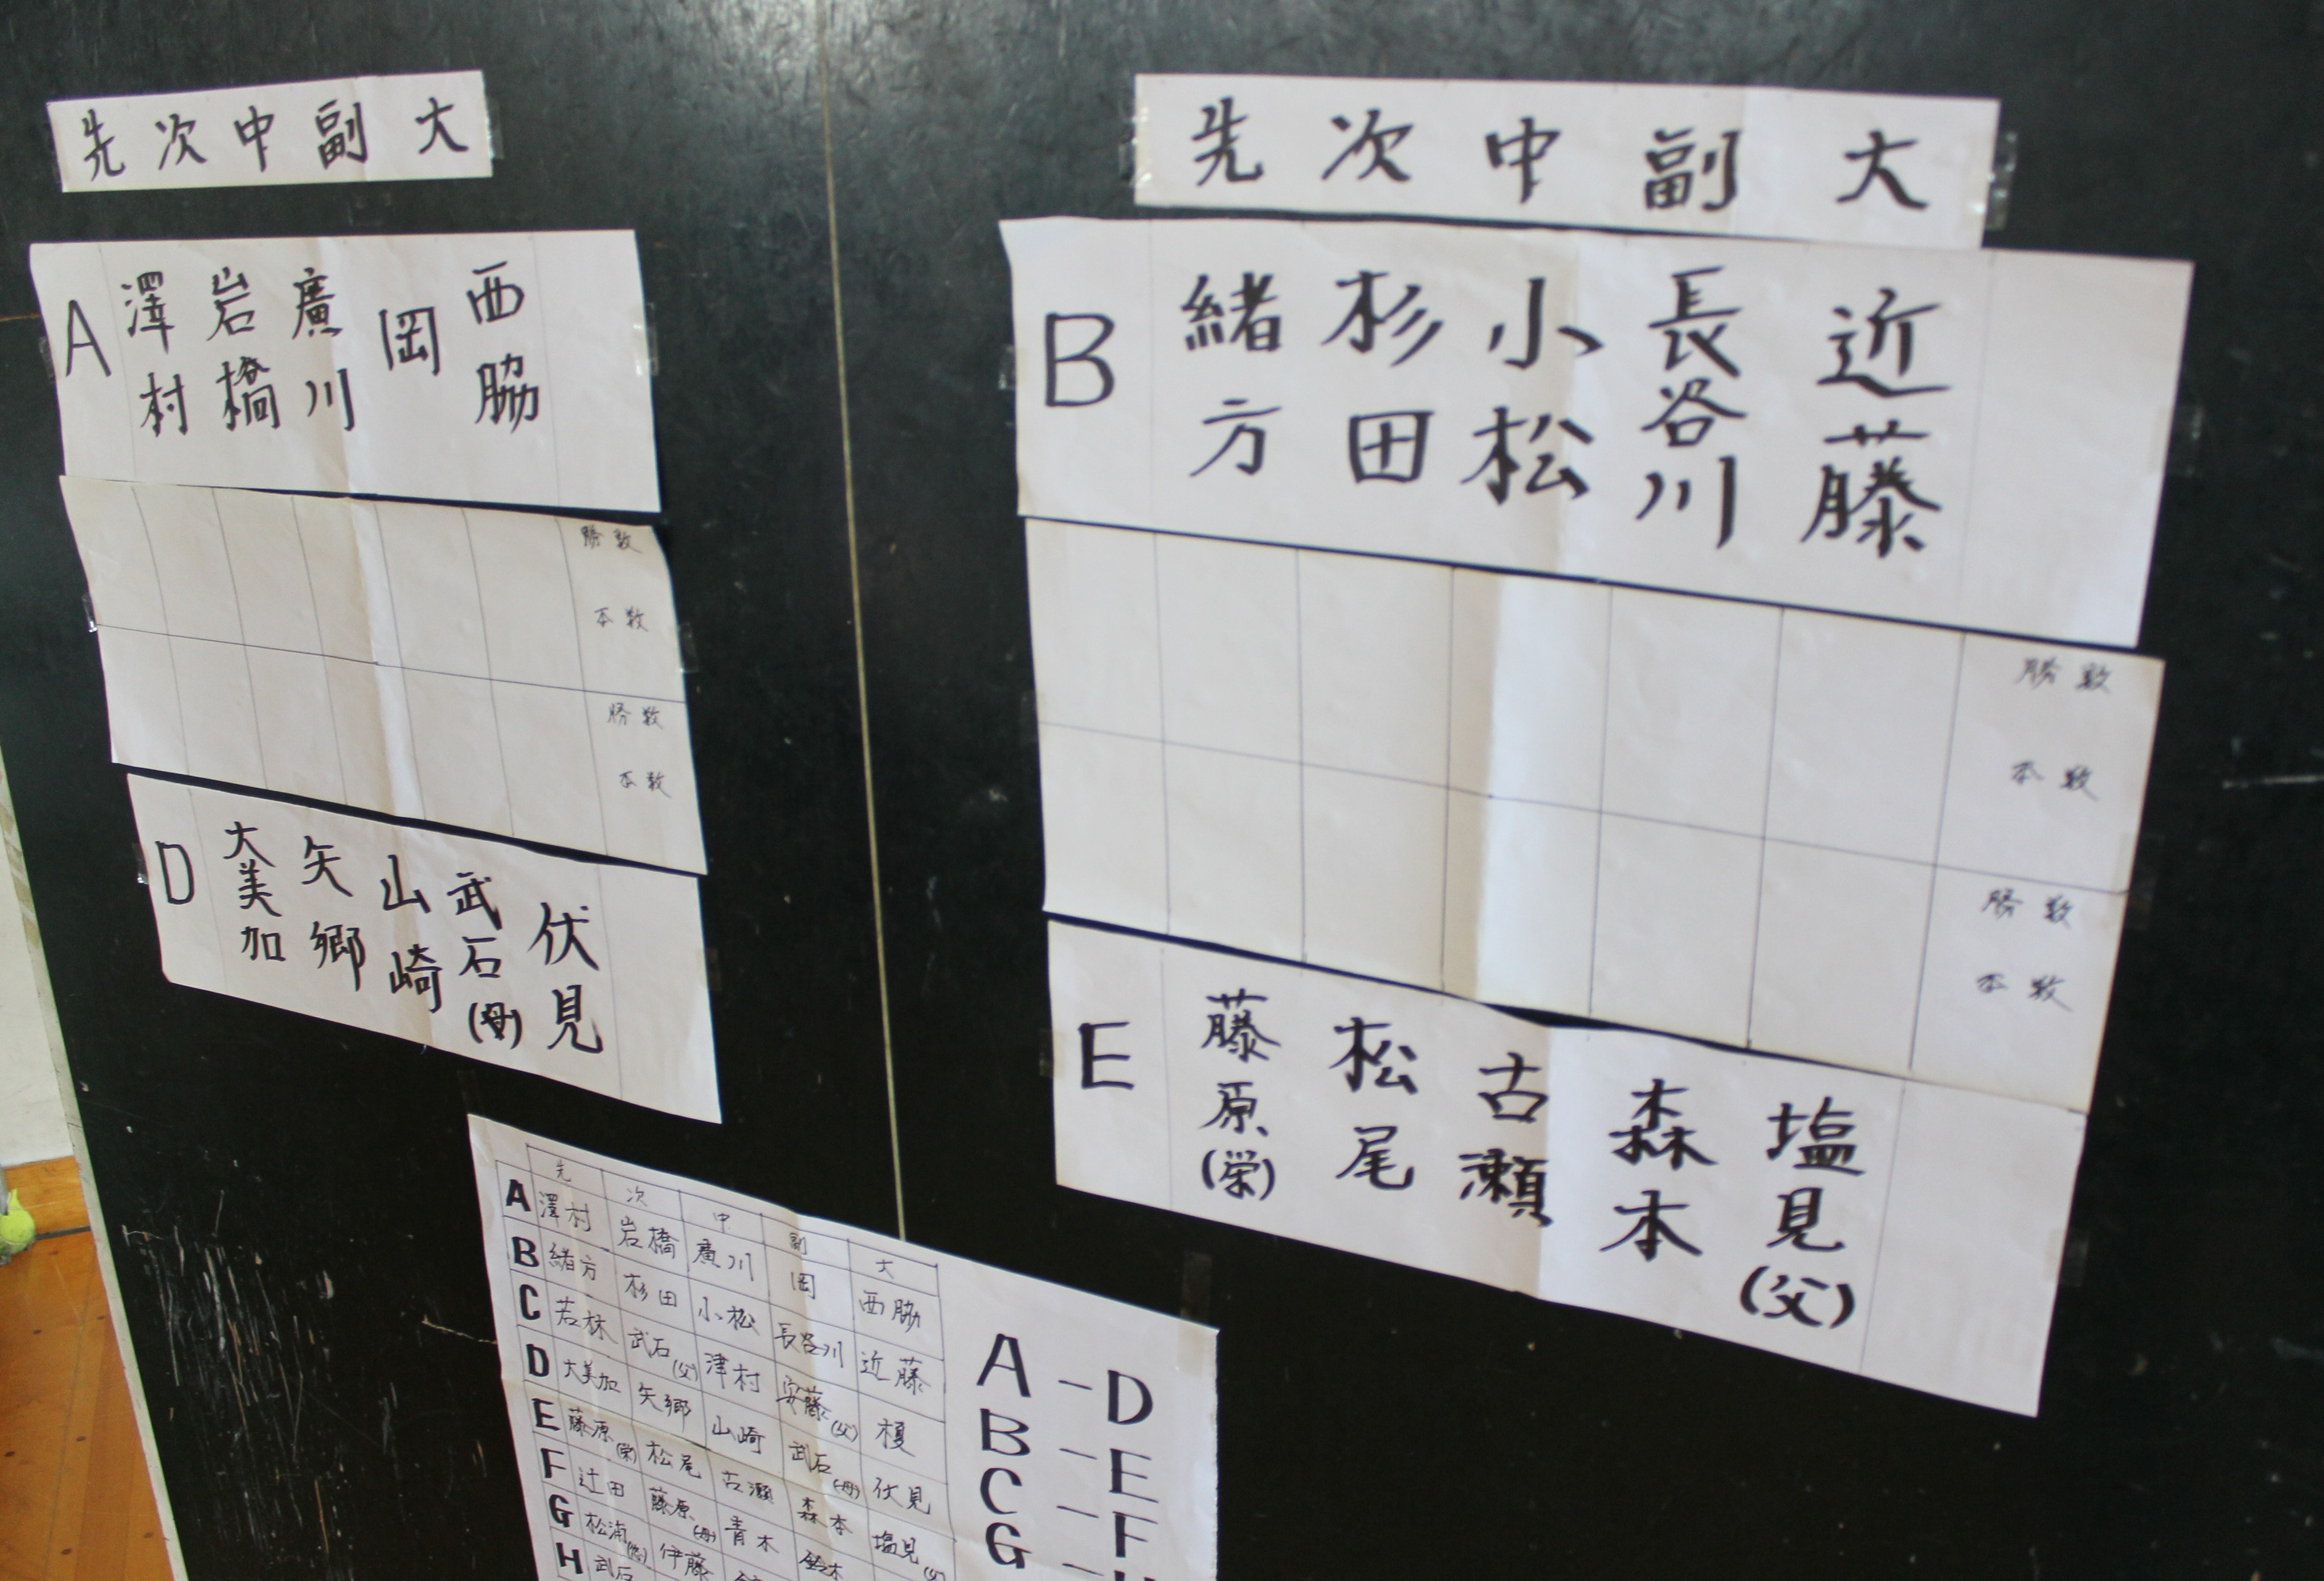 先 次 中 副 大
A 澤村 岩橋 廣川 岡 西脇
勝数
本数
勝数
本数
D 大美加 矢郷 山崎 武石(母) 伏見
先 次 中 副 大
B 緒方 杉田 小松 長谷川 近藤
勝数
本数
勝数
本数
E 藤原(栄) 松尾 古瀬 森本 塩見(父)
先 次 中 副 大
A 澤村 岩橋 廣川 岡 西脇
B 緒方 杉田 小松 長谷川 近藤
C 若林 武石(父) 津村 安藤(父) 榎
D 大美加 矢郷 山崎 武石(母) 伏見
E 藤原(栄) 松尾 古瀬 森本 塩見(父)
F 辻田 藤原(母) 青木 鈴木
G 松浦 伊藤
H 武石
A - D
B - E
C - F
G - H